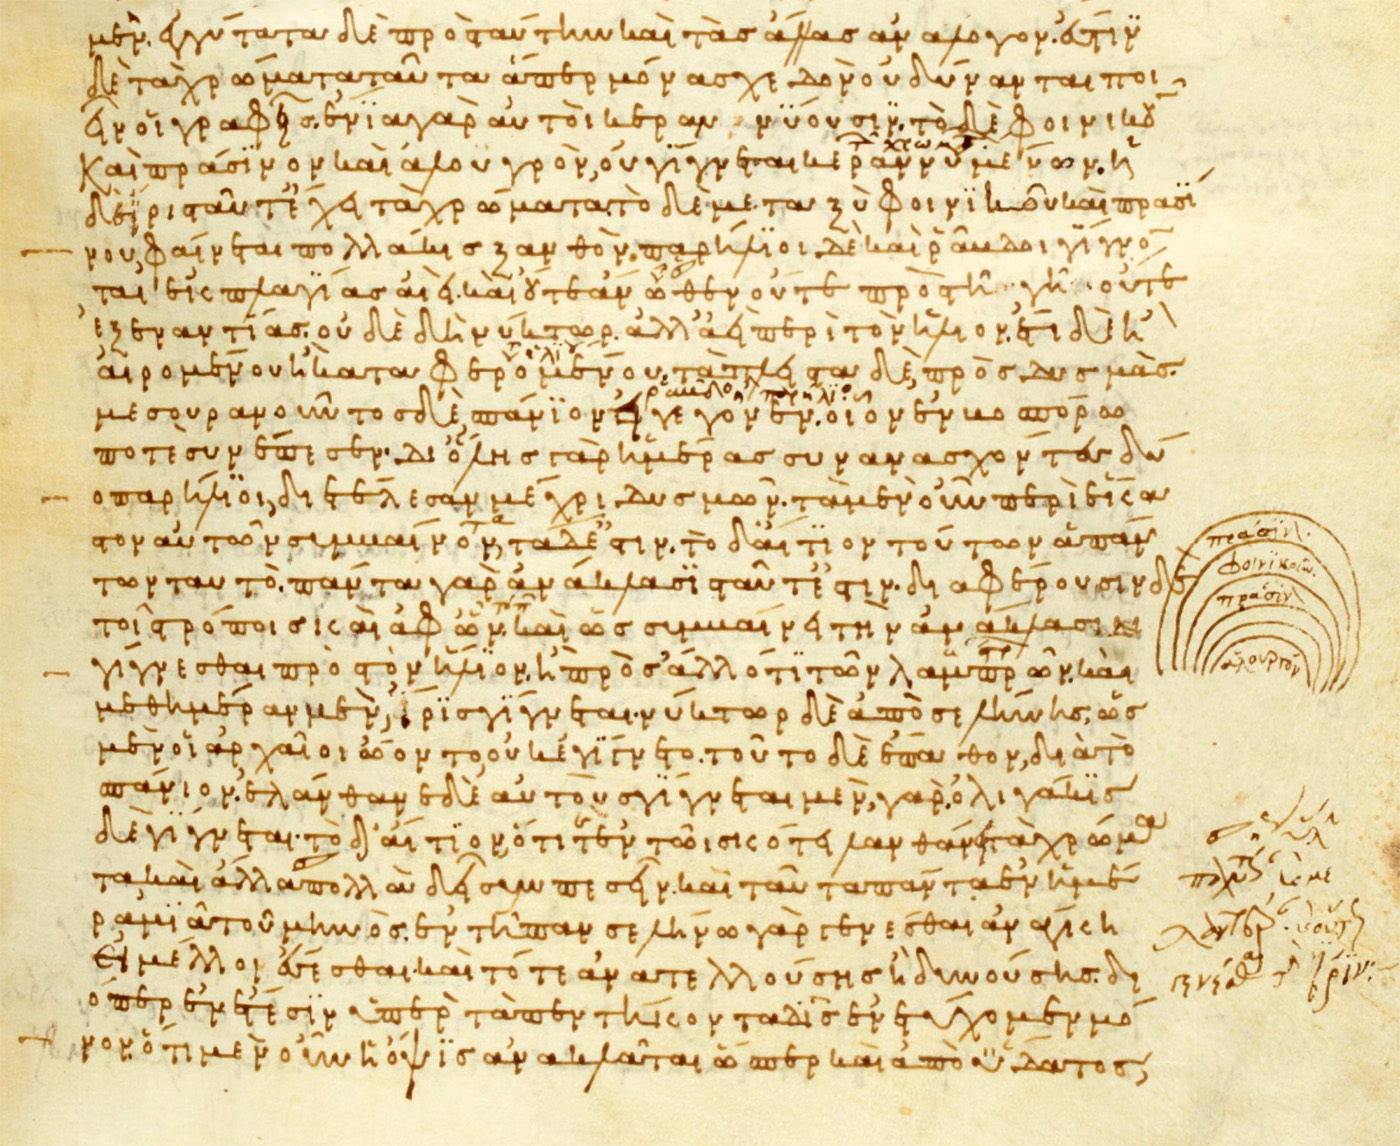 μέν. ἐγγύτατα δὲ πρὸς ταύτην καὶ τὰς ἄλλας ἀνάλογον. ἔστιν
δὲ τὰ χρώματα ταῦτα ἅπερ μόνα σχεδὸν οὐ δύνανται ποι
εῖν οἱ γραφεῖς. ἔνια γὰρ αὐτοὶ κεραννύουσιν. τὸ δὲ φοινικοῦν
καὶ πράσινον καὶ ἁλουργὸν, οὐ γίγνεται κεραννύμενον. ἡ
δὲ ἶρις ταῦτ' ἔχει τὰ χρώματα. τὸ δὲ μεταξὺ φοινικοῦν καὶ πρασί
νου, φαίνεται πολλάκις ξανθόν. παρήλιοι δὲ καὶ ῥάβδοι γίγνον
ται ἐκ πλαγίας αἰεὶ. καὶ οὔτε ἄνωθεν οὔτε πρὸς τῇ γῇ οὔτε
ἐξεναντίας. οὐδὲ δὴ νύκτωρ. ἀλλ' ἀεὶ περὶ τὸν ἥλιον. ἔτι δὲ ἢ
αἰρομένου ἢ καταφερομένου. τὰ πλεῖστα δὲ, πρὸς δυσμὰς.
μεσουρανοῦντος δὲ, σπάνιον εἰ γέγονεν. οἷον ἐν βοσπόρω
ποτὲ συνέπεσεν. δι' ὅλης γὰρ ἡμέρας συνανασχόντες δύ
ο παρήλιοι, διετέλεσαν μέχρι δυσμῶν. τὰ μὲν οὖν περὶ ἕκα
στον αὐτῶν συμβαίνοντα, ταῦτ' ἐστιν. τὸ δ' αἴτιον τούτων ἁπάν
των ταυτό. πάντα γὰρ ἀνάκλασις ταῦτ' ἐστιν. διαφέρουσιν δὲ
τοῖς τρόποις καὶ ἀφ' ὧν. καὶ ὡς συμβαίνει τὴν ἀνάκλασιν
γίγνεσθαι πρὸς τὸν ἥλιον. ἢ πρὸς ἄλλό τι τῶν λαμπρῶν. καὶ
μεθημέραν μὲν, ἶρις γίγνεται. νύκτωρ δὲ ἀπὸ σελήνης. ὡς
μὲν οἱ ἀρχαῖοι ὤοντο οὐκ ἐγίγνετο. τοῦτο δὲ ἔπαθον, διὰ τὸ
σπάνιον. ἐλάνθανε δὲ αὐτοὺς γίγνεται μὲν, γὰρ. ὀλιγάκις
δὲ γίγνεται. τὸ δ' αἴτιον, ὅτι τ' ἐν τῶ σκότει λανθάνει τὰ χρώμα
τα. καὶ ἄλλα πολλὰ δεῖ συμπεσεῖν. καὶ ταῦτα πάντα ἐν ἡμέ
ρα μιᾶ τοῦ μηνός. ἐν τῆ πανσελήνω γὰρ γενέσθαι ἀνάγκη
εἰ μέλλοι ἔσεσθαι. καὶ τότε ἀνατελλούσης ἢ δυνούσης. δι
όπερ ἐν ἔτεσιν ὑπὲρ τὰ πεντήκοντα δὶς ἐνετύχομεν μό
νον. ὅτι μὲν οὖν ἡ ὄψις ἀνακλᾶται ὥσπερ καὶ ἀπὸ ὕδατος,
πράσιν
φοινικοῦν
πράσιν
ἁλουργόν